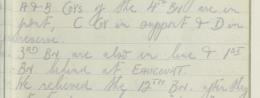 A & B Coys of the 4TH Bn are in
front, C Coy in support & D in
reserve.
3RD Bn are also in line & 1ST
Bn behind at EAUCOURT.
We relieved the 12TH Bn. after they